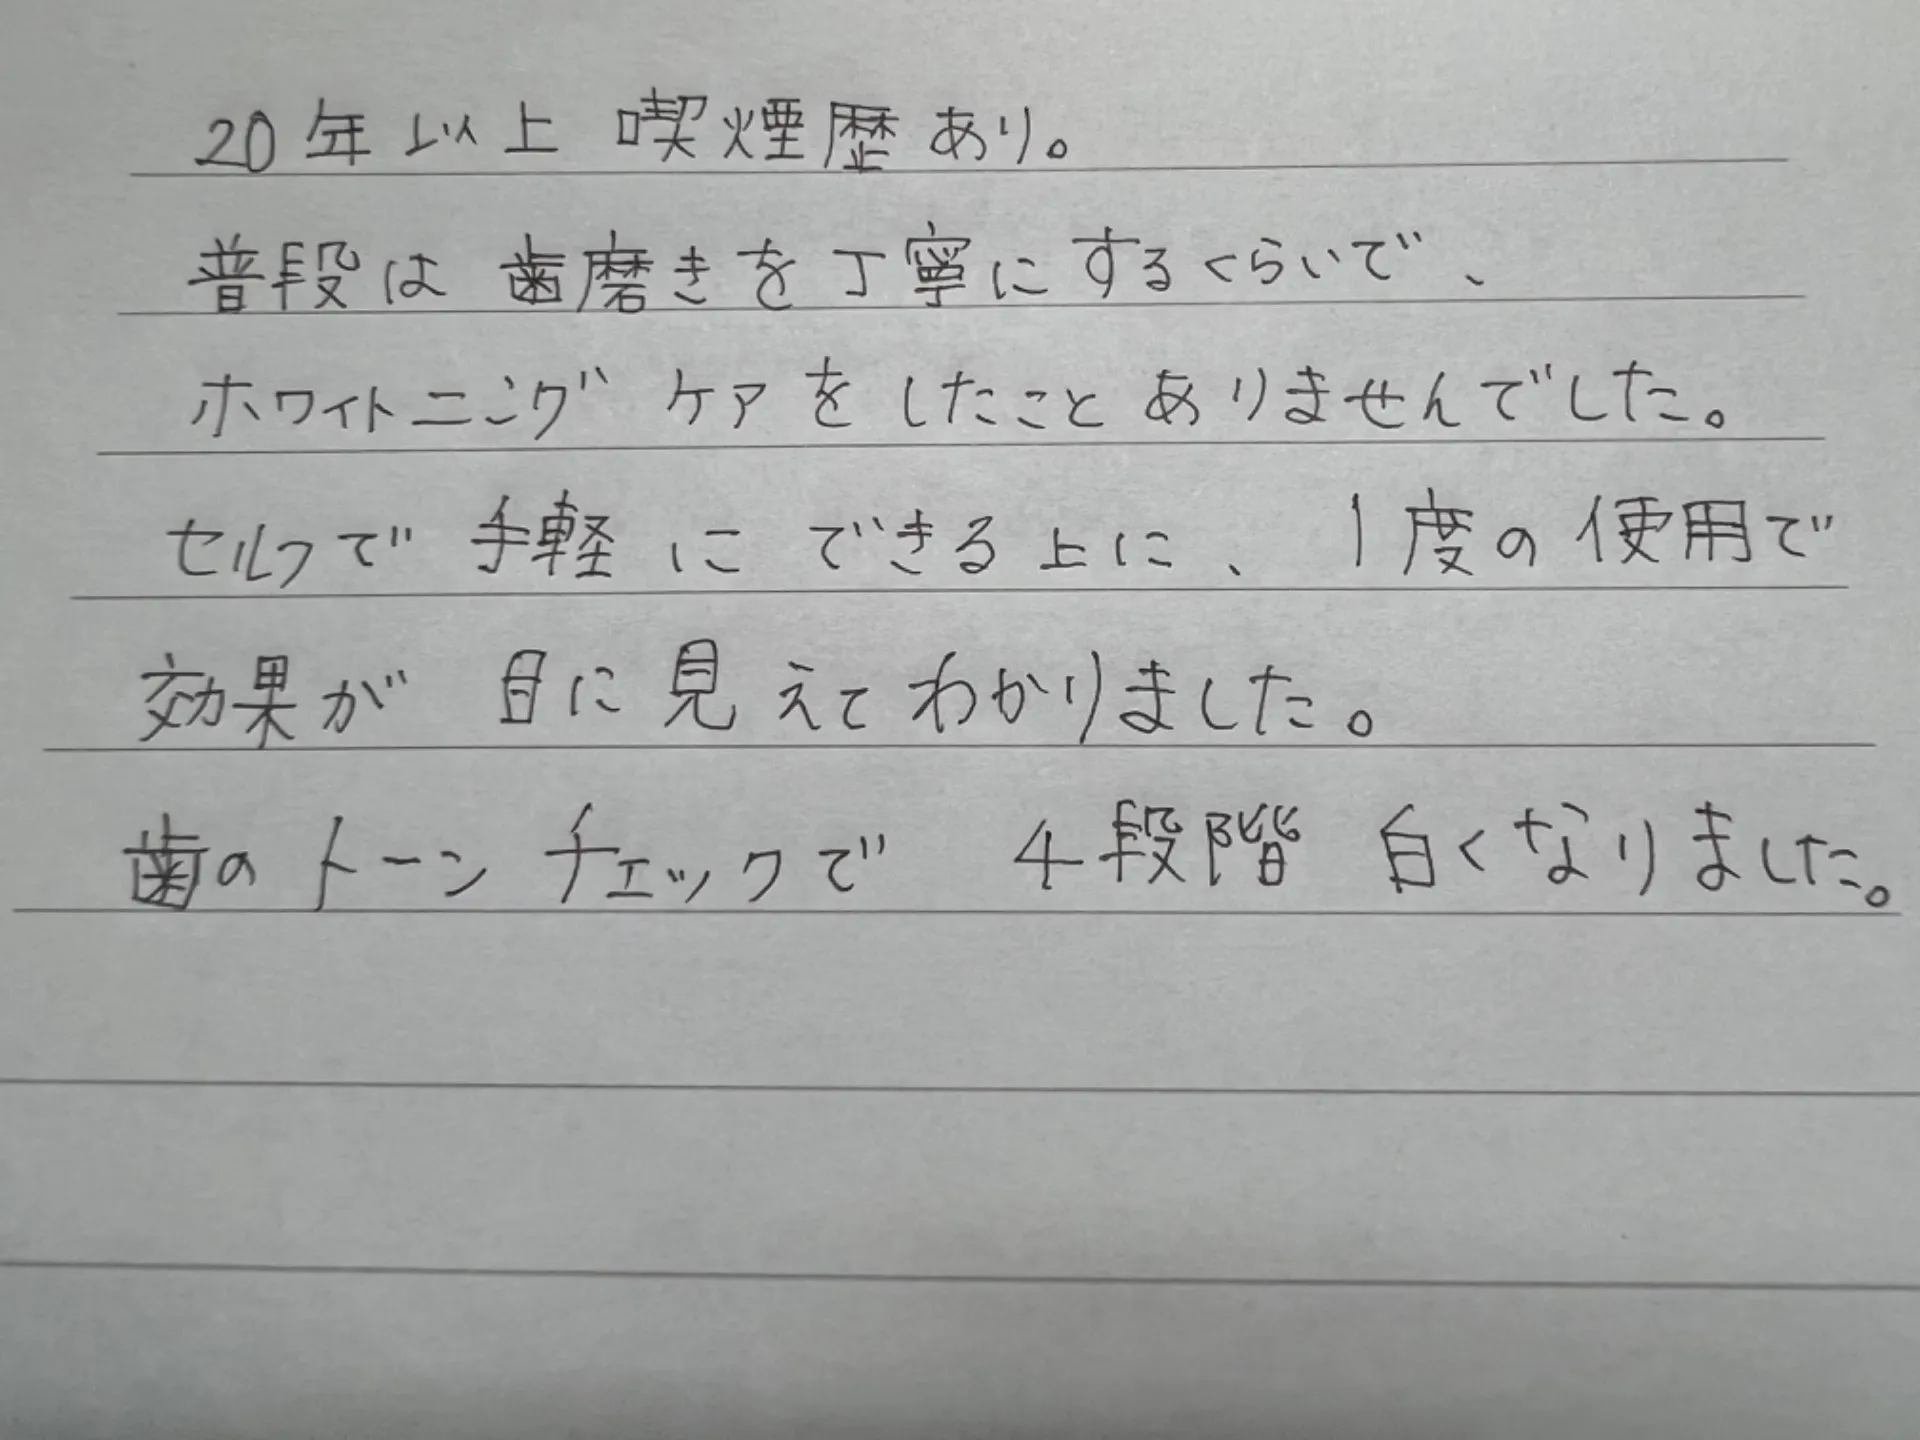 20年以上 喫煙歴あり。
普段は 歯磨きを丁寧にするくらいで、
ホワイトニング ケアをしたことありませんでした。
セルフで 手軽にできる上に、1度の使用で
効果が 目に見えてわかりました。
歯のトーンチェックで 4段階 白くなりました。